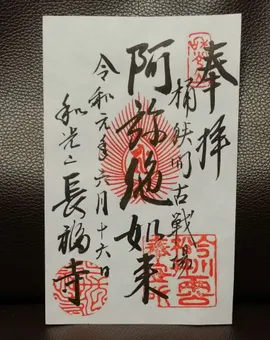 奉拝
桶狭間古戦場
阿弥陀如来
令和元年六月十六日
和光山
長福寺